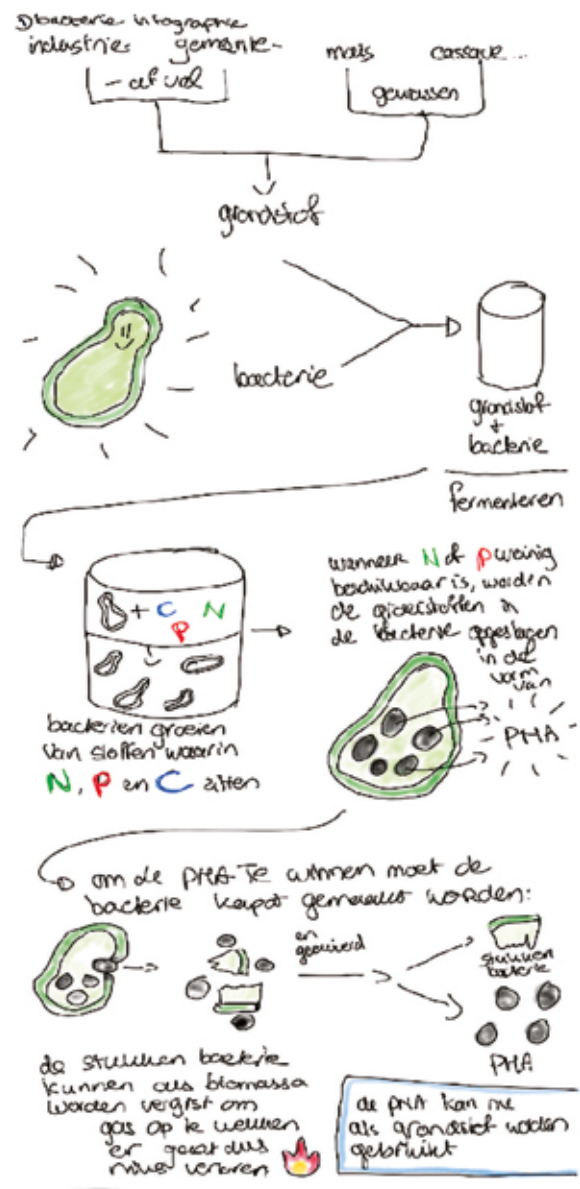 bacterie infographie
industrie- gemeente-
- afval
mais cassave...
gewassen
grondstof
bacterie
grondstof
+
bacterie
fermenteren
+ C N
P
bacterien groeien
van stoffen waarin
N, P en C zitten
wanneer N of P weinig
beschikbaar is, worden
de
de bacterie opgeslagen
in de
vorm
van
PHA
om de PHA te winnen moet de
bacterie kapot gemaakt worden:
en
gezuiverd
stukken
bacterie
PHA
de stukken bacterie
kunnen als biomassa
worden vergist om
gas op te wekken
er gaat dus
niets verloren
de PHA kan nu
als grondstof worden
gebruikt